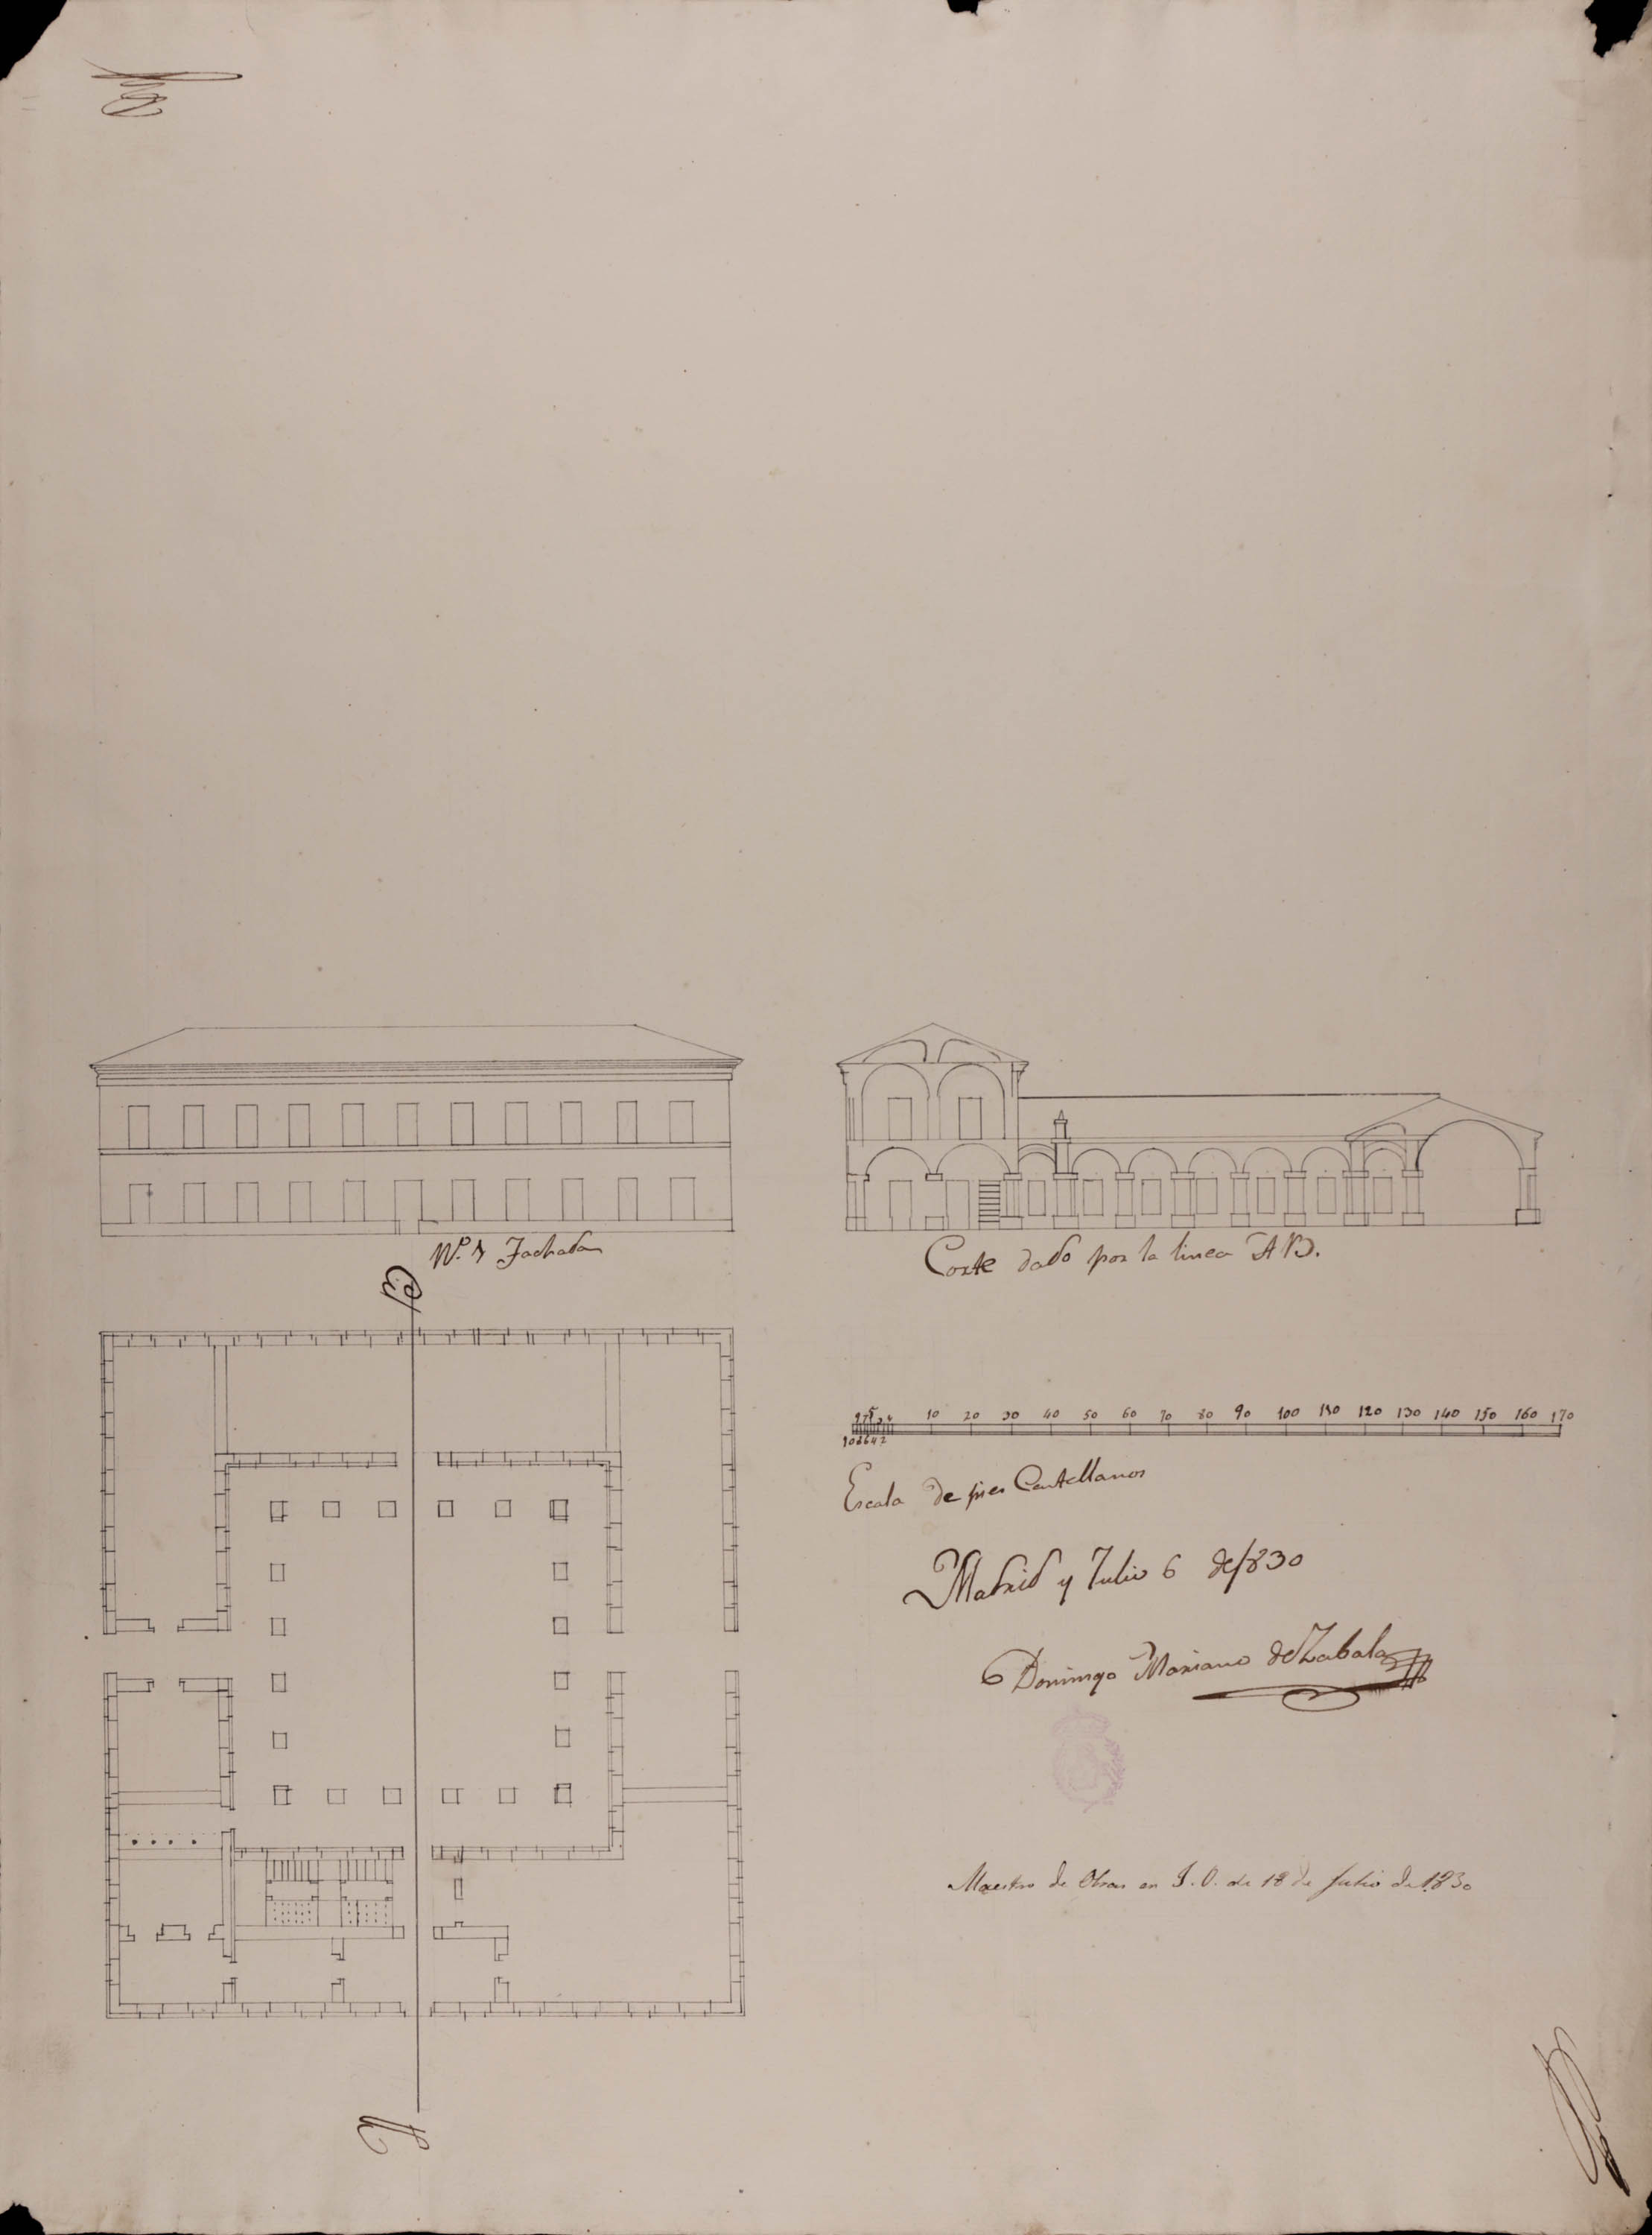 Fachada
Corte dado por la linea A B.
10 20 30 40 50 60 70 80 90 100 110 120 130 140 150 160 170
10 8 6 4 2
Escala de pies Castellanos
Madrid y Julio 6 de 1830
Domingo Mariano de Zabala
Maestro de Obras en J. O. de 18 de Julio de 1830
B
A